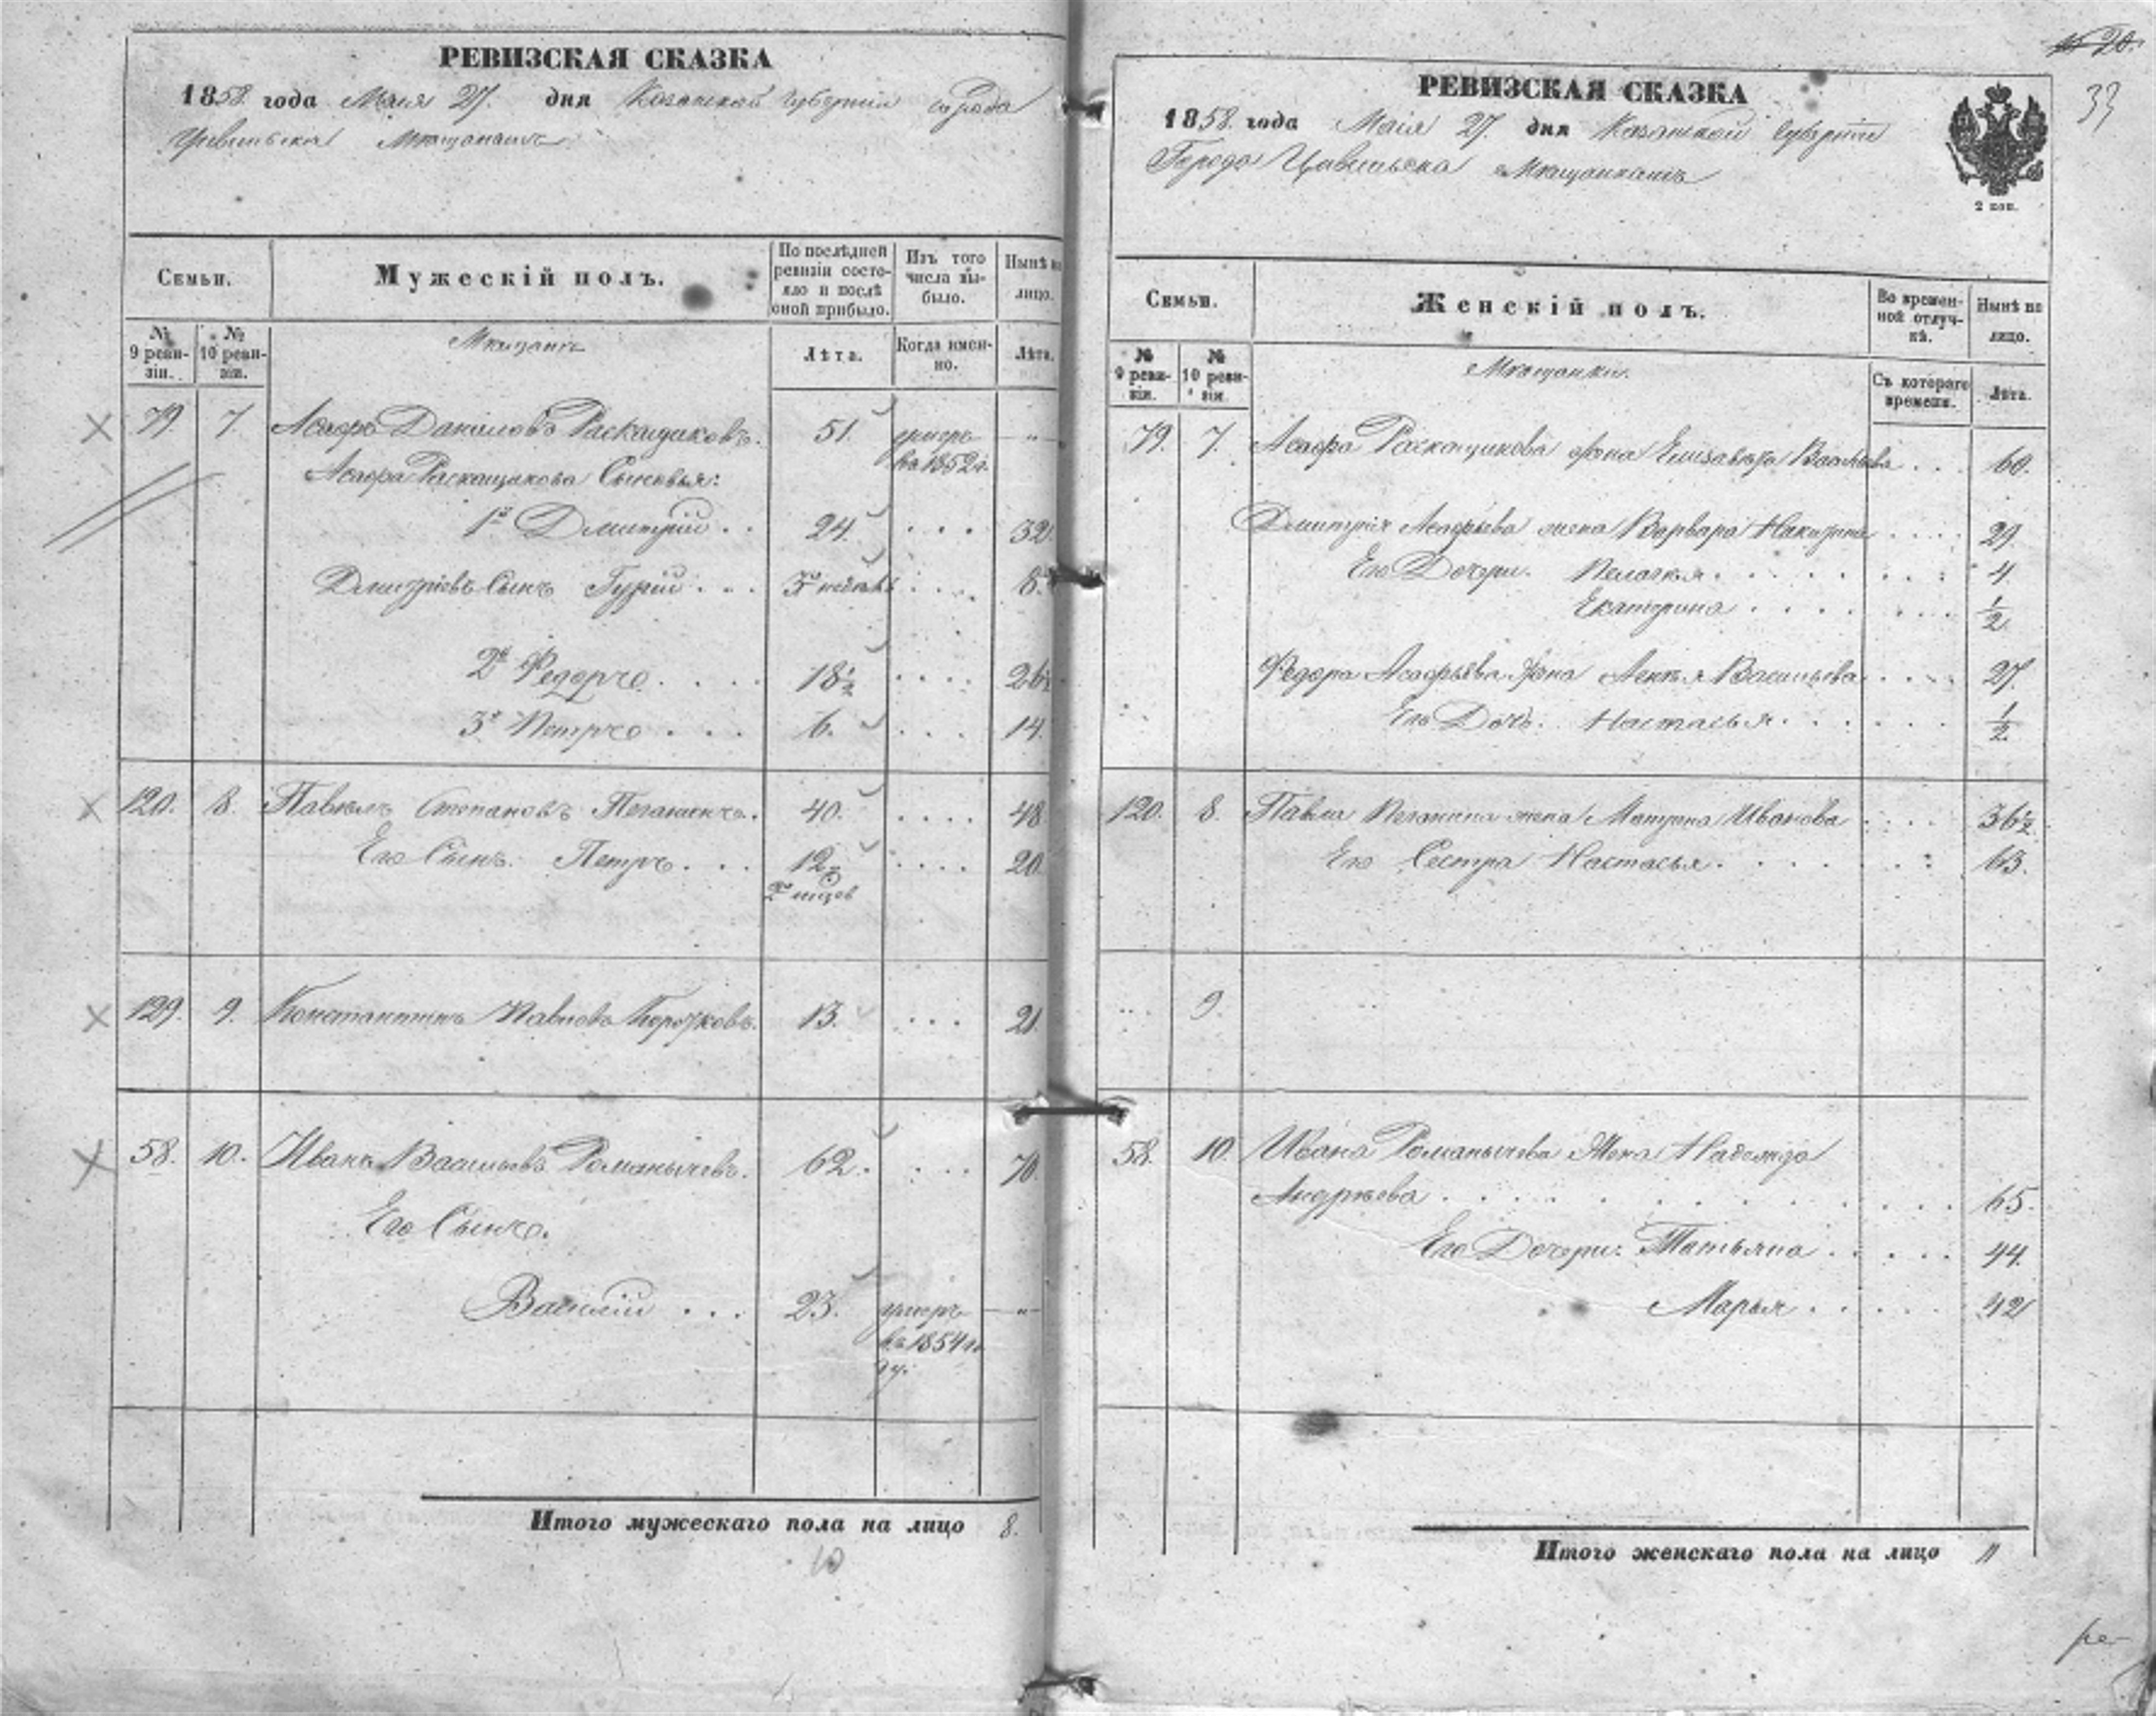 РЕВИЗСКАЯ СКАЗКА
1858 года Маия 27. дня Казанской губернии города
Цивильска Мѣщанамъ
Семьи.
Мужескій полъ.
По послѣдней ревизіи состояло и послѣ оной прибыло.
Изъ того числа выбыло.
Нынѣ на лицо.
№ 9 ревизіи.
№ 10 ревизіи.
Мѣщанъ
Лѣта.
Когда именно.
Лѣта.
79. 7. Асафъ Даниловъ Раскащиковъ. 51. умеръ въ 1852 г. — „ —
Асафа Раскащикова Сыновья:
1й Дмитрій . . 24. . . . 32.
Дмитріевъ Сынъ Гурій . . . 3х недѣль . . . 8.
2й Федоръ . . . . 18½ . . . . 26½
3й Петръ . . . . 6. . . . 14.
120. 8. Павелъ Степановъ Пеганинъ. 40. . . . . 48
Его Сынъ: Петръ . . . 12 . . . . 20
129. 9. Константинъ Павловъ 13. . . . 21.
58. 10. Иванъ Васильевъ Романычевъ. 62. . . . 70.
Его Сынъ.
Василій . . . 23. умеръ въ 1854 году. — „ —
Итого мужескаго пола на лицо 8.
10
20.
33
РЕВИЗСКАЯ СКАЗКА
1858 года Маія 27. дня Казанской Губерніи
Города Цивильска Мѣщанамъ
2 коп.
Семьи.
Женскій полъ.
Во временной отлучкѣ.
Нынѣ на лицо.
№ 9 ревизіи.
№ 10 ревизіи.
Мѣщанки.
Съ котораго времени.
Лѣта.
79. 7. Асафа Раскащикова жена Елизавета Васильева . . . 60.
Дмитрія Асафьева жена Варвара Никитина . . . . 29.
Его Дочери: Пелагея . . . . . . . . 4
Екатерина . . . . . . . . ½
Федора Асафьева Жена Васильева . . . . 27.
Его Дочь. Настасья . . . . . . . ½
120. 8. Павла Пеганина жена Матрена Иванова . . . . 36½
Его Сестра Настасья . . . . . . . 63.
9.
58. 10. Ивана Романычева Жена Надежда
Андреева . . . . . . . . . . . 65.
Его Дочери: Татьяна . . . . . 44.
Марья . . . . . 42
Итого женскаго пола на лицо 11